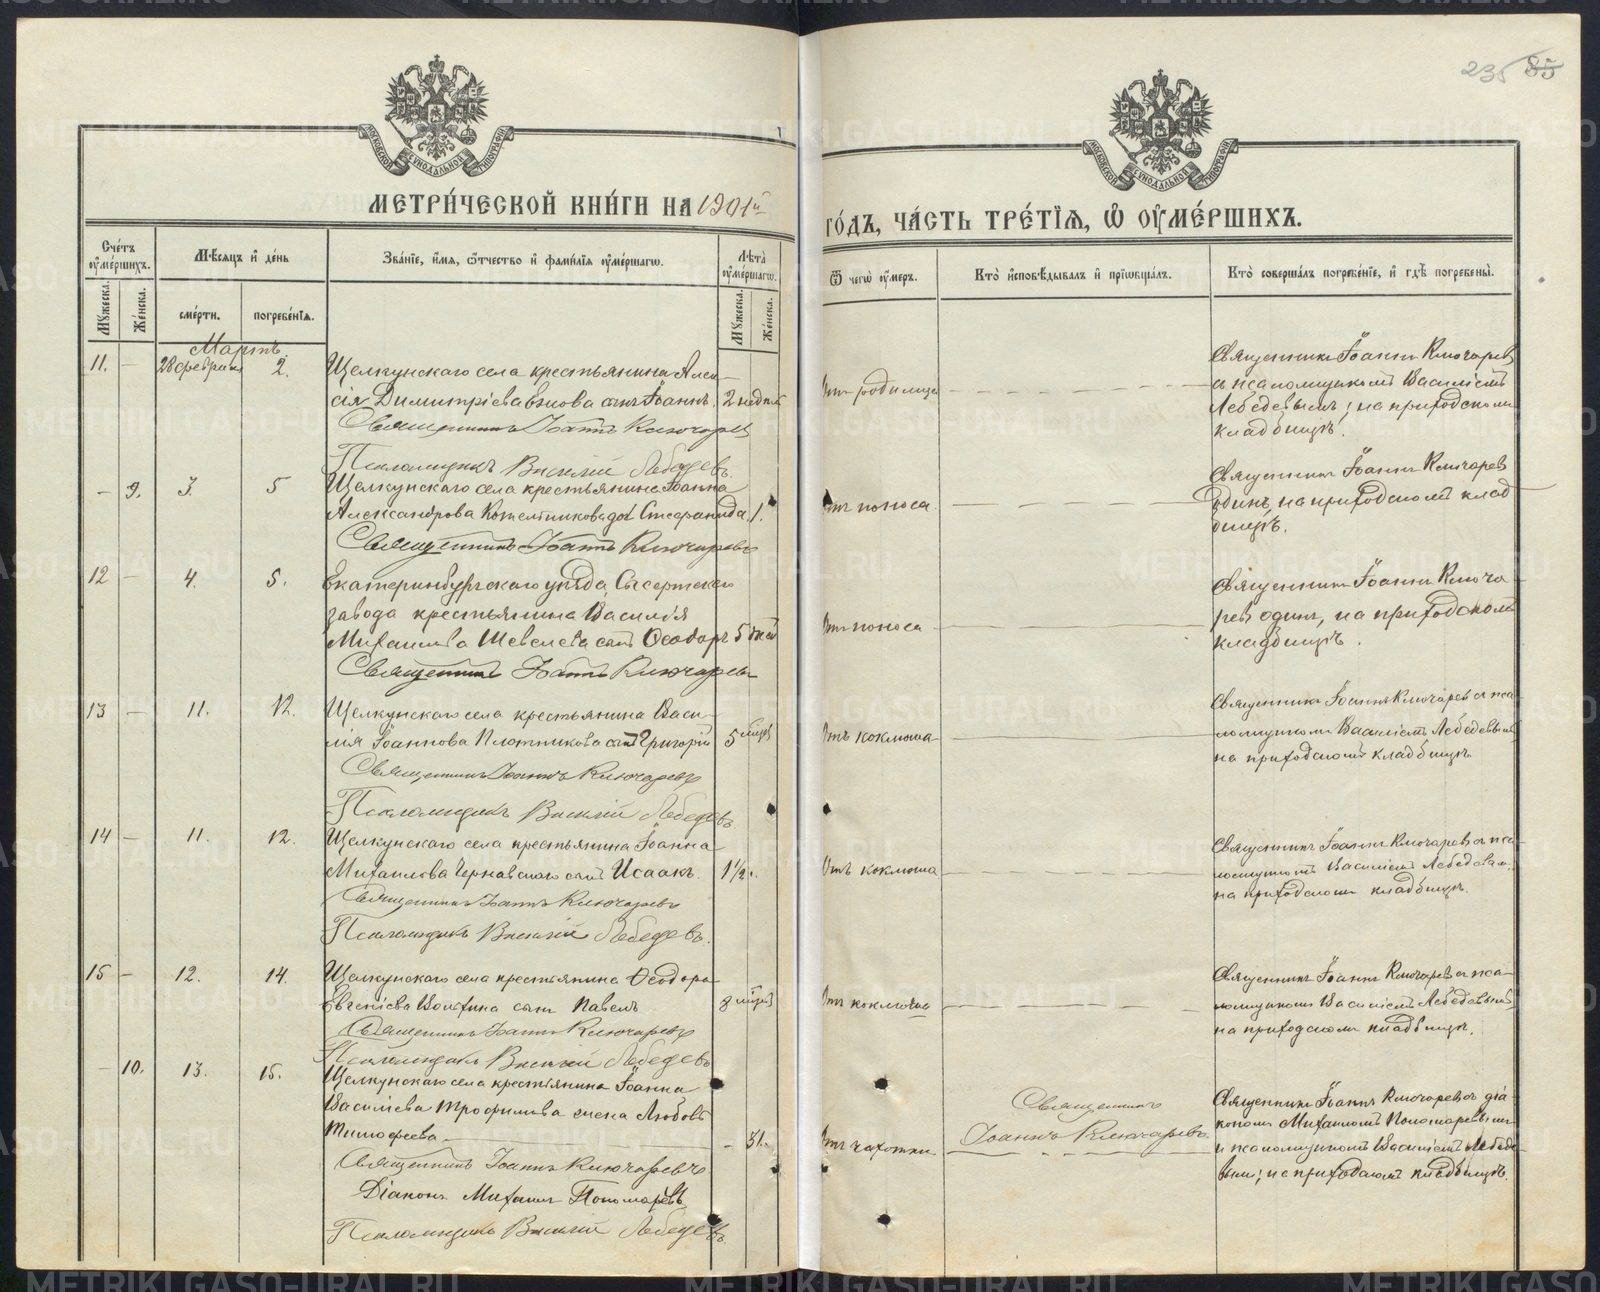 235 85
МЕТРИ́ЧЕСКОЙ КНИ́ГИ НА 1901й
ГО́ДЪ, ЧА́СТЬ ТРЕ́ТІѦ, Ѡ ОУМЕ́РШИХЪ.
МОСКОВСКОЙ СѴНОДАЛЬНОЙ ТИПОГРАФІИ
МОСКОВСКОЙ СѴНОДАЛЬНОЙ ТИПОГРАФІИ
Сче́тъ оуме́ршихъ.
Мѣсяцъ и де́нь
Зва́ніе, и́мя, ѻ́тчество и фами́лія оуме́ршагѡ.
Лѣта̀ оуме́ршагѡ.
Ѿ чегѡ̀ оу́меръ.
Кто̀ исповѣ́дывалъ и пріѡбща́лъ.
Кто̀ соверша́лъ погребе́ніе, и гдѣ̀ погребены̀.
Мꙋжеска.
Же́нска.
сме́рти.
погребе́нія.
Мꙋжеска.
Же́нска.
Мартъ
11. — 28 февраля 2. Щелкунскаго села крестьянина Алек-
сія Димитріева сынъ Іоаннъ. 2 недѣл
Священникъ Іоаннъ Ключаревъ
Псаломщикъ Василій Лебедевъ.
Отъ родимца
Священникъ Іоаннъ Ключаревъ
съ псаломщикомъ Василіемъ
Лебедевымъ; на приходскомъ
кладбищѣ.
— 9. 3. 5 Щелкунскаго села крестьянина Іоанна
Александрова дочь Стефанида. 1.
Священникъ Іоаннъ Ключаревъ
Отъ поноса.
Священникъ Іоаннъ Ключарев
одинъ, на приходскомъ клад
бищѣ.
12 — 4. 5. Екатеринбургскаго уѣзда, Сысертскаго
завода крестьянина Василія
Михаилова Шевелева сынъ Ѳеодоръ 5 дней
Священникъ Іоаннъ Ключаревъ
Отъ поноса
Священникъ Іоаннъ Ключа
ревъ одинъ, на приходскомъ
кладбищѣ.
13 — 11. 12. Щелкунскаго села крестьянина Васи-
лія Іоаннова Плотникова сынъ Григорій 5 мѣсяц
Священникъ Іоаннъ Ключаревъ
Псаломщикъ Василій Лебедевъ
Отъ коклюша
Священникъ Іоаннъ Ключарев съ пса-
ломщикомъ Василіемъ Лебедевымъ
на приходскомъ кладбищѣ.
14 — 11. 12. Щелкунскаго села крестьянина Іоанна
Михаилова Чернавскаго сынъ Исаакъ. 1 1/2.
Священникъ Іоаннъ Ключаревъ
Псаломщикъ Василій Лебедевъ.
Отъ коклюша
Священникъ Іоаннъ Ключарев съ пса-
ломщикомъ Василіемъ Лебедевым,
на приходскомъ кладбищѣ.
15 — 12. 14. Щелкунскаго села крестьянина Ѳеодора
Евгеніева сынъ Павелъ 8 мѣсяц
Священникъ Іоаннъ Ключаревъ
Псаломщикъ Василій Лебедевъ
Отъ коклюша
Священникъ Іоаннъ Ключарев съ пса-
ломщикомъ Василіемъ Лебедевымъ
на приходскомъ кладбищѣ.
— 10. 13. 15. Щелкунскаго села крестьянина Іоанна
Василіева Трофимова жена Любовь
Тимофеева — 31.
Священникъ Іоаннъ Ключаревъ
Діаконъ Михаилъ Пономаревъ
Псаломщикъ Василій Лебедевъ.
Отъ чахотки
Священникъ
Іоаннъ Ключаревъ.
Священникъ Іоаннъ Ключаревъ съ діа-
кономъ Михаиломъ Пономаревымъ
и псаломщикомъ Василіемъ Лебеде
вым; на приходскомъ кладбищѣ.
METRIKI.GASO-URAL.RU